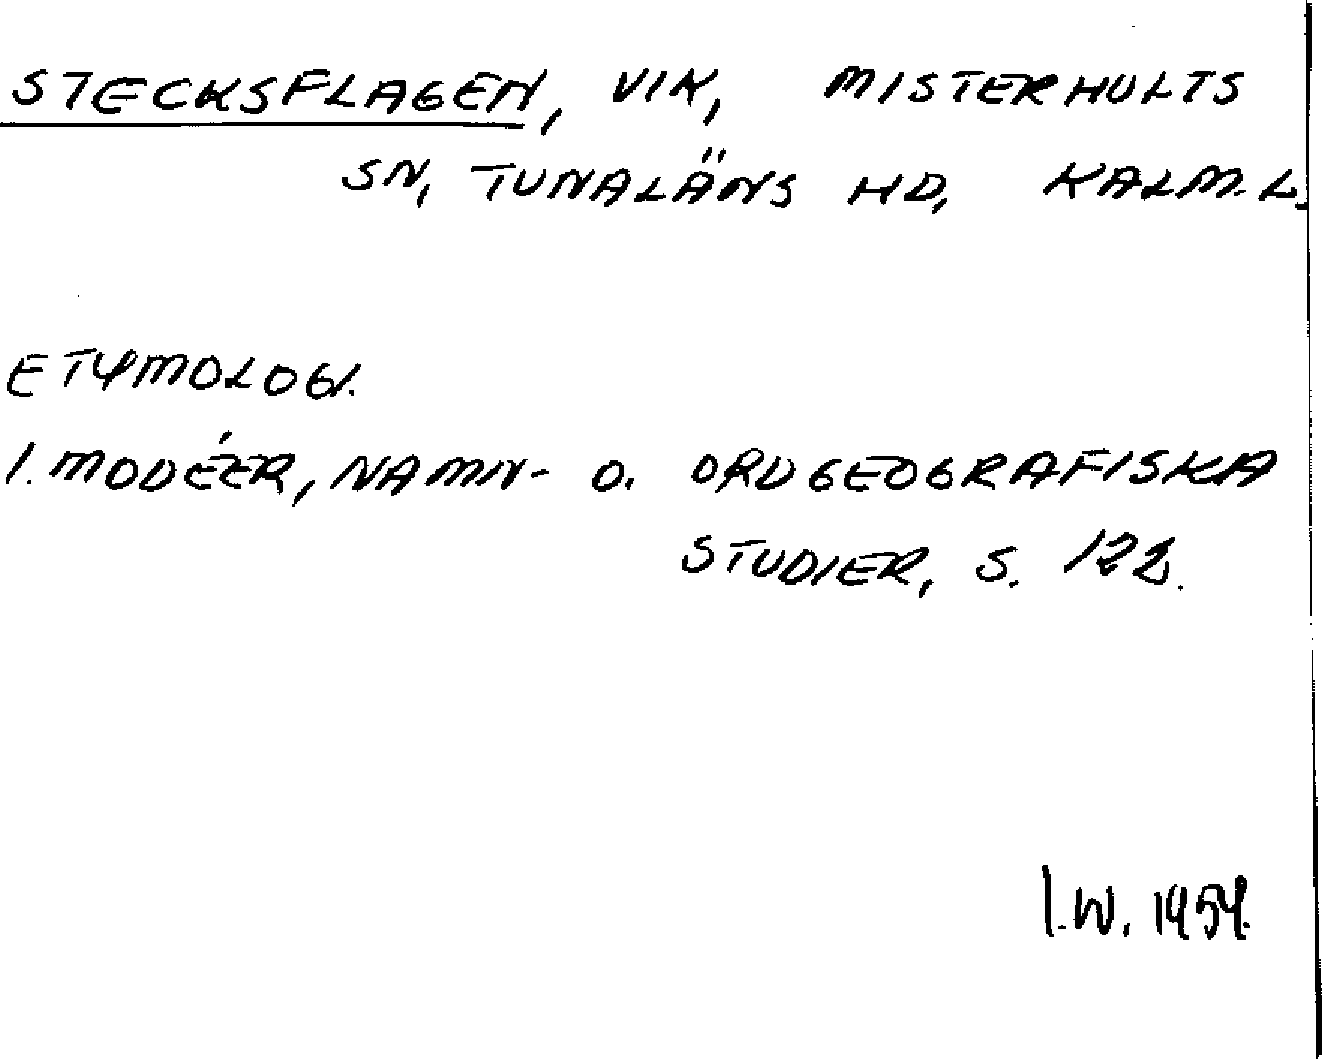 STECKSFLAGEN, VIK, MISTERHULTS
SN, TUNALÄNS HD, KALM. L.
ETYMOLOGI.
I. MODÉER, NAMN- O. ORDGEOGRAFISKA
STUDIER, S. 122.
I.W. 1954.